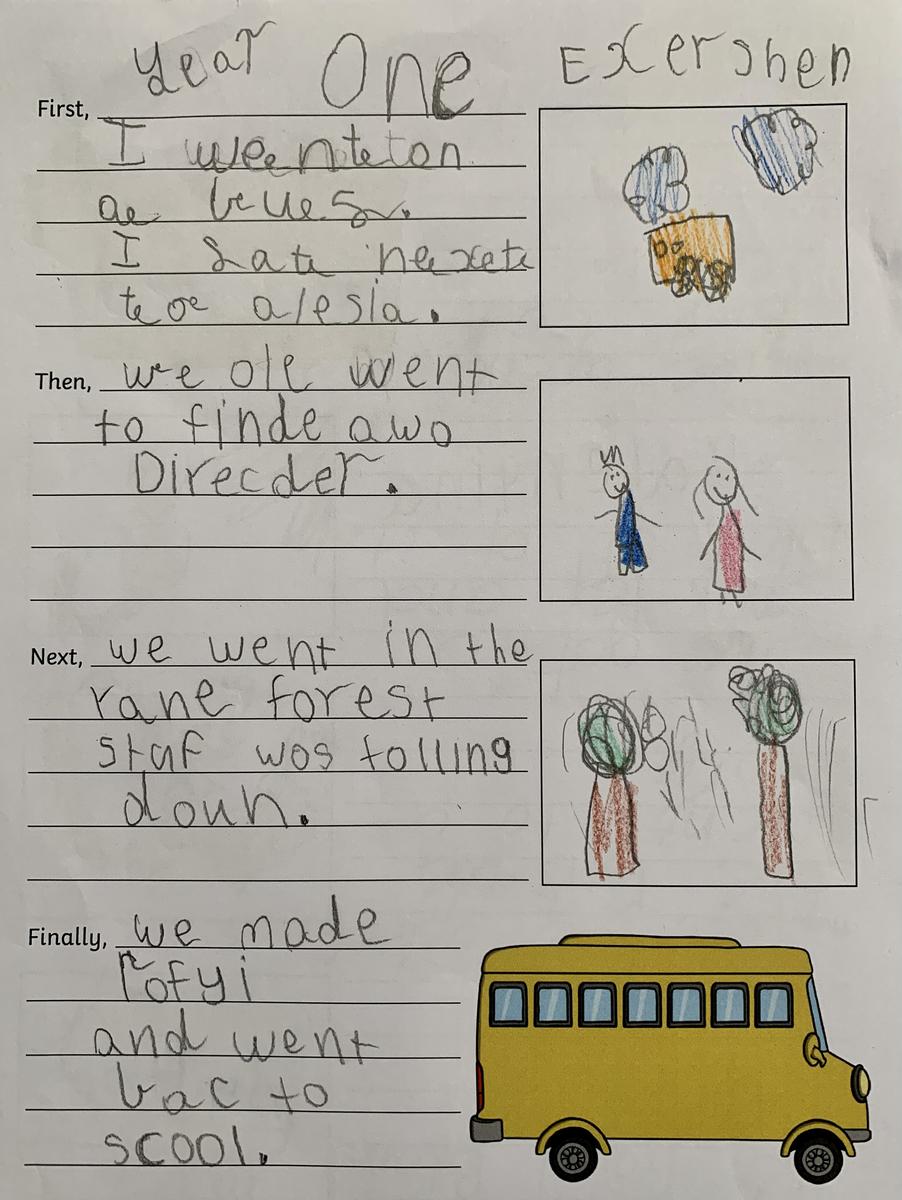 Year One Exershen
First,
I weenteton
ae beues.
I sate nexete
teoe alesia.
Then, we ole went
to finde awo
Direcder.
Next, we went in the
rane forest
staf wos folling
doun.
Finally, we made
Tofyi
and went
bac to
scool.